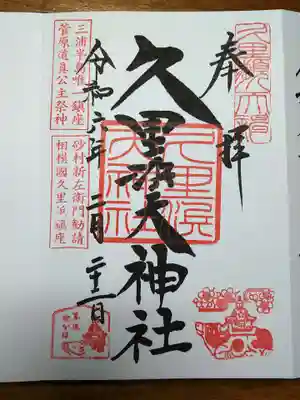 奉拝
久里浜天神社
久里浜天神社
令和六年二月二十二日
三浦半島唯一鎮座
菅原道真公主祭神
砂村新左衛門勧請
相模國久里浜鎮座